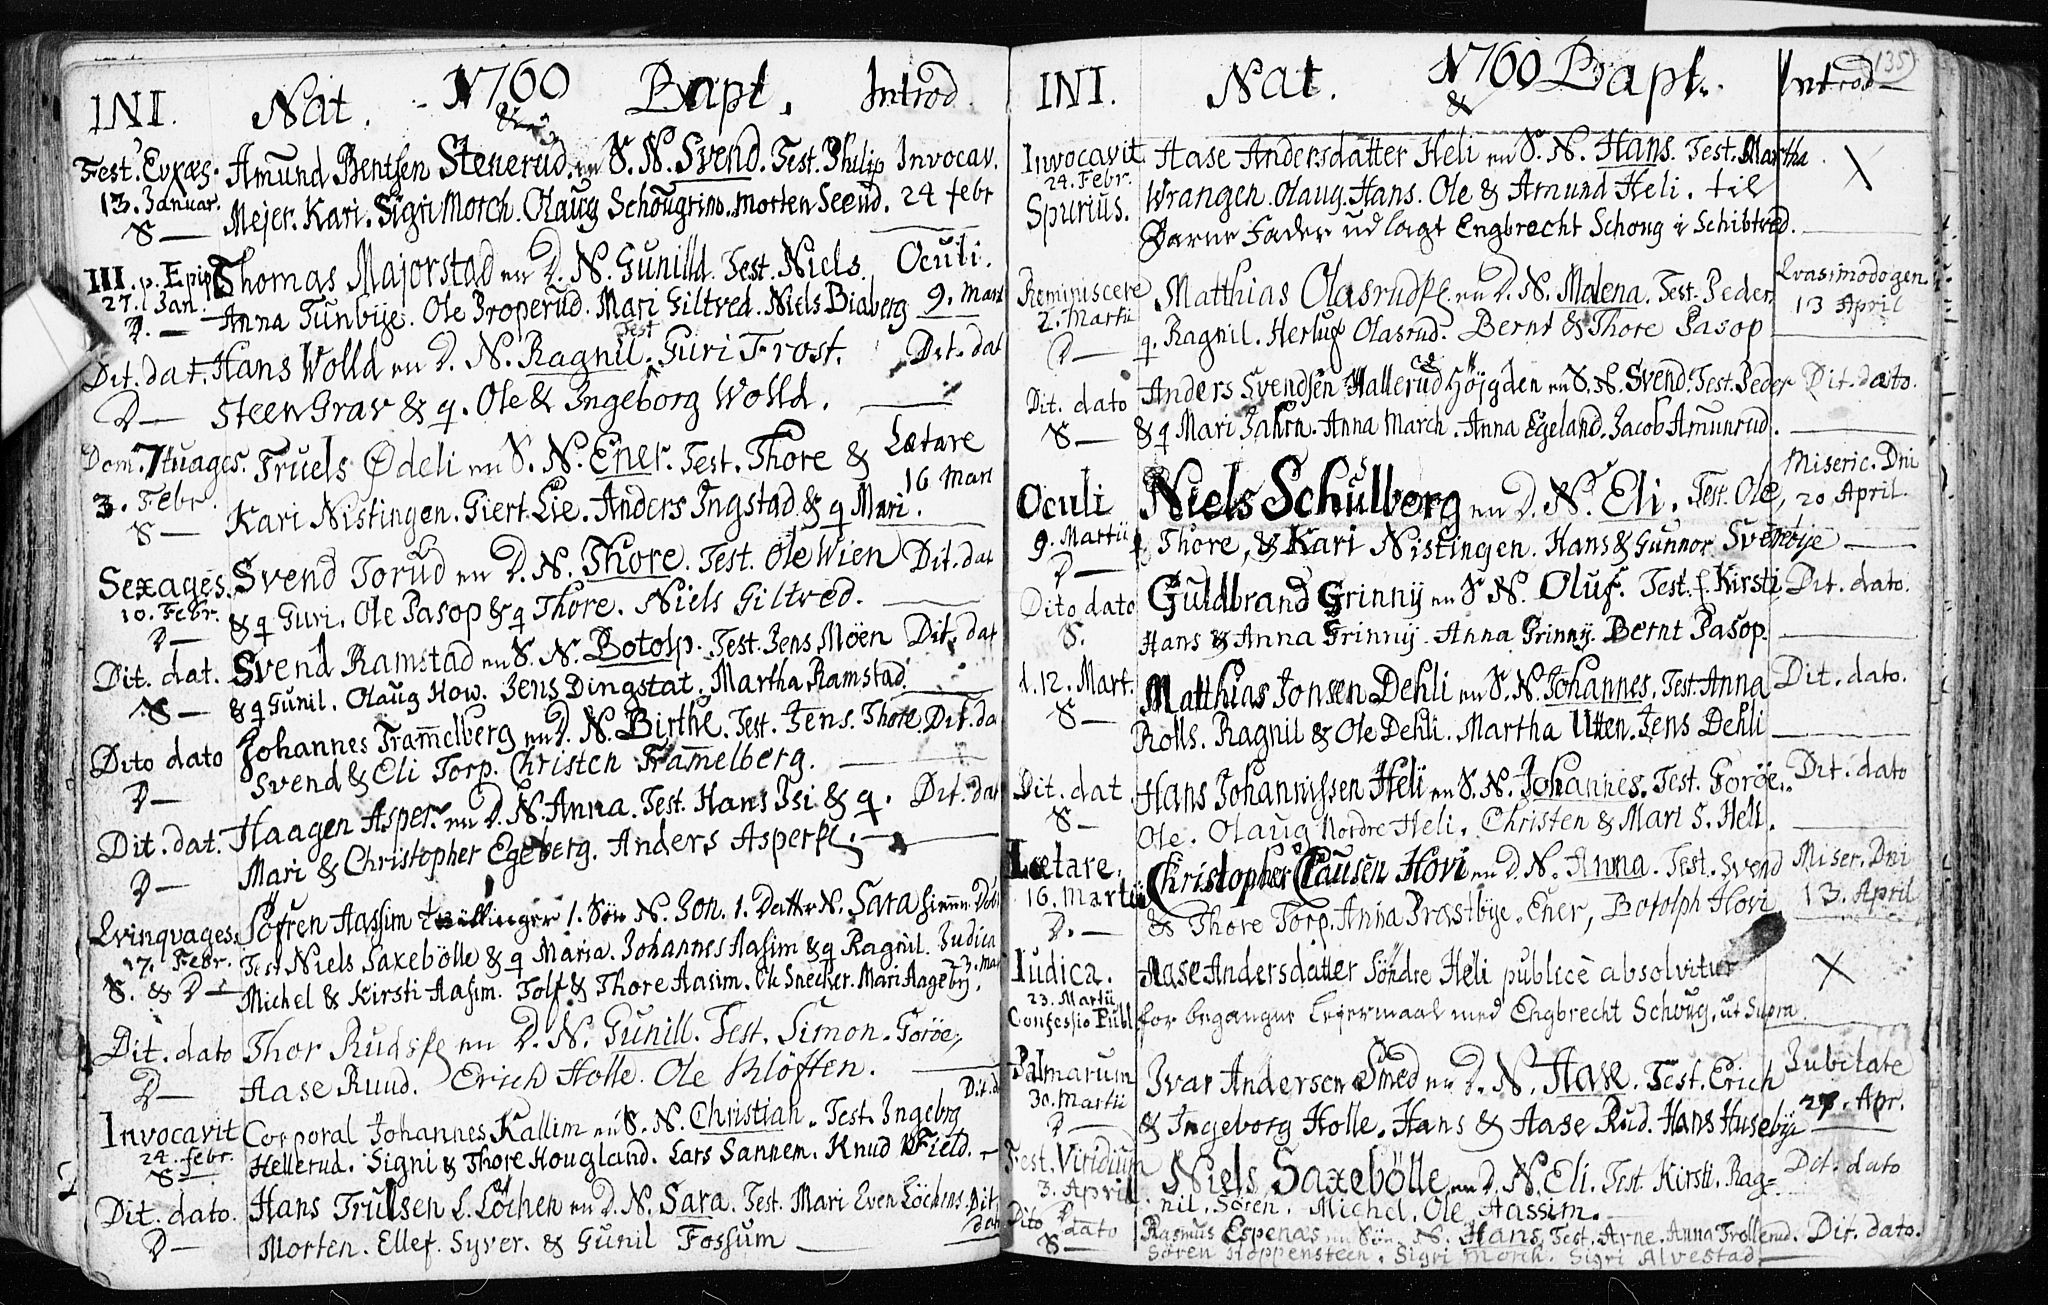 INI. Nat. 1760 & Bapt. Introd.
Fest. Evræs. Amund Bentsen Stenerud en S. N. Svend. Test. Philip Invocav.
13. Januar. Mejer. Kari. Sigri Morch. Olaug Schougrim. Morten Seeud. 24 febr
S —
III. p. Epip Thomas Majorstad en D. N. Gunild. Test. Niels. Oculi.
27. Jan. Anna Tunbije. Ole Properud. Mari Giltved. Niels Biaberg 9. Mart
D. —
Dit. dat. Hans Wolld en D. N. Ragnil. Test Guri Frost. Dit. dat
D — Steen Grav & q. Ole & Ingeborg Wolld.
Dom. 7tuages. Truels Ødeli en S. N. Ener. Test. Thore & Lætare
3. Febr. Kari Nistingen. Giert Lie. Anders Ingstad & q Mari. 16 Mart
S —
Sexages. Svend Torud en D. N. Thore. Test. Ole Wien Dit. dat
10. Febr. & q Guri. Ole Pasop & q Thore. Niels Giltved.
D —
Dit. dat. Svend Ramstad en S. N. Botolp. Test. Jens Möen Dit. dat
S — & q Gunil. Olaug How. Jens Dingstat. Martha Ramstad.
Dito dato Johannes Tram̄elberg en D. N. Birthe. Test. Jens. Thore. Dit. da
D — Svend & Eli Torp. Christen Tram̄elberg.
Dit. dat. Haagen Asper. en D. N. Anna. Test. Hans Isi & q. Dit. dat
D — Mari & Christopher Egeberg. Anders Asperpl.
Qvinqvages. Søfren Aassim tvillinger 1. Sön N. Jon. 1. Datter N. Sara
17. Febr. Test Niels Saxebölle & q Maria. Johannes Aasim & q Ragnil. Judica
S. & D — Michel & Kirsti Aasim. Tolf & Thore Aasim. Ole Snecker. Mari Aagebij. 23. Mar
Dit. dato Thor Rudspl en D. N. Gunill. Test. Simon. Goröe,
D — Aase Ruud. Erich Holle. Ole Klöften. Dit. d
Invocavit Corporal Johannes Kallim en S. N. Christian. Test. Ingebrg
24. febr. Hellerud. Signi & Thore Hougland. Lars Sannem. Knud Field. —
S —
Dit. dato. Hans Trulsen L. Löchen en D. N. Sara. Test. Mari Even Löchens. Dit.
D — Morten. Ellef. Syver. & Gunil Fossum — dato
INI. Nat. 1760 & Bapt. Introd 135
Invocavit Aase Andersdatter Heli en S. N. Hans. Test. Martha X
24. Febr. Wrangen. Olaug. Hans. Ole & Amund Heli. til
Spurius. Barne Fader udlagt Engbrecht Schoug i Schibtved.
Reminiscere Matthias Olasrudpl. en D. N. Malena. Test. Peder Qvasimodogen.
2. Martii q. Ragnil. Herluf Olasrud. Bernt & Thore Pasop 13 April
D —
Dit. dato Anders Svendsen Hallerud Höjgden en S. N. Svend. Test. Peder Dit. dato.
S — & q Mari Jahrn. Anna March. Anna Egeland. Jacob Amunrud.
Oculi Niels Schulberg en D. N. Eli. Test. Ole, Miseric. Dni
9. Martii Thore, & Kari Nistingen. Hans & Gunnor Svenöije 20 April.
D —
Dito dato Guldbrand Grinny en S N. Oluf. Test. Kirsti Dit. dato.
S. Hans & Anna Grinny. Anna Grinny. Bernt Pasop.
d. 12. Mart. Matthias Jonsen Dehli en S. N. Johannes. Test. Anna Dit. dato.
S — Rolls. Ragnil & Ole Dehli. Martha Utten. Jens Dehli
Dit. dat Hans Johannissen Heli en S. N. Johannes. Test. Goröe. Dit. dato
S — Ole. Olaug Nordre Heli. Christen & Mari S. Heli.
Lætare. Christopher Clausen Hovi en D. N. Anna. Test. Svend Miser. Dni
16. Martii & Thore Torp. Anna Præstbye. Ener, Botolph Hovi 13. April
D. —
Iudica. Aase Andersdatter Söndre Heli publicè absolvitur X
23. Martii
Confessio Publ for begangne Lejermaal med Engbrecht Schoug, ut Supra
Palmarum Ivar Andersen Smed en D. N. Aase. Test. Erich Jubilate
30. Martii & Ingeborg Holle. Hans & Aase Rud. Hans Husebye 27. Apr.
D —
Fest. Viridium Niels Saxebölle en D. N. Eli. Test Kirsti. Rag= Dit. dato
3. April. nil. Sören. Michel. Ole Aassim.
Dito dato Rasmus Espenæs en Sön N. Hans. Test. Arne. Anna Trollerud. Dit. dato.
S — Sören Hoppensteen. Sigri Morch. Sigri Alvestad.